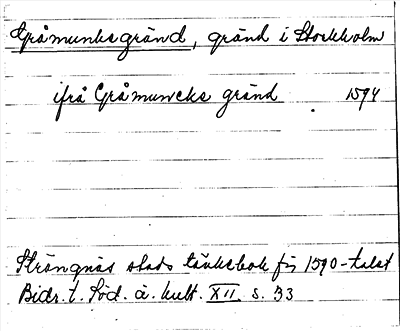 Gråmunksgränd, gränd i Stockholm
ifrå Gråmuncks gränd 1594
Strängnäs stads tänkebok för 1590-talet
Bidr. t. Söd. ä. kult. XII s. 33